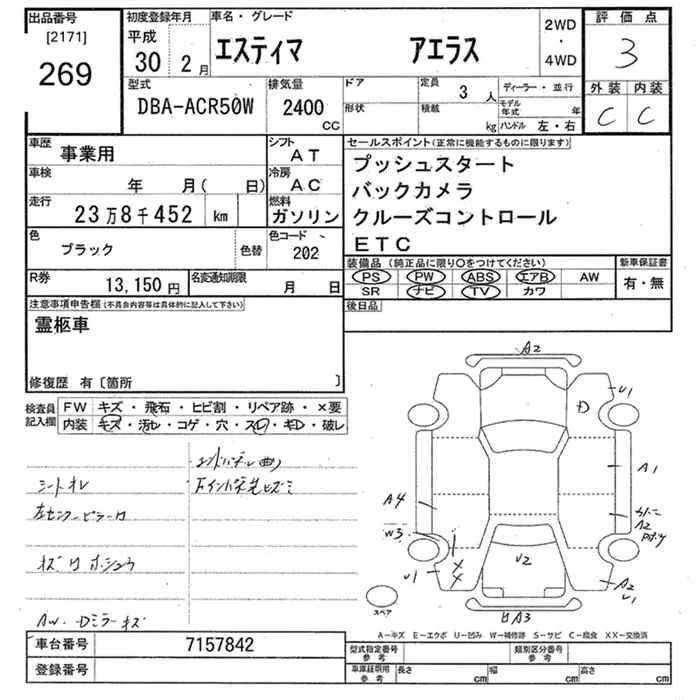 出品番号
[2171]
269
初度登録年月
平成
30 2月
車名・グレード
エスティマ アエラス
2WD
・
4WD
評価点
3
外装 内装
C C
型式
DBA-ACR50W
排気量
2400
CC
ドア
形状
定員
3 人
積載
kg
ディーラー・並行
モデル
年式 年
ハンドル 左・右
車歴 事業用
シフト
AT
車検 年 月( 日)
冷房
AC
走行 23万8千452 km
燃料
ガソリン
色 ブラック 色替
色コード
202
R券 13,150円
名変通知期限
月 日
セールスポイント(正常に機能するものに限ります)
プッシュスタート
バックカメラ
クルーズコントロール
ETC
装備品(純正品に限り〇をつけてください)
PS PW ABS エアB AW
SR ナビ TV カワ
新車保証書
有・無
後日品
注意事項申告欄(不具合内容等は具体的に記入して下さい)
霊柩車
修復歴 有〔箇所 〕
検査員
記入欄
FW キズ・飛石・ヒビ割・リペア跡・×要
内装 キズ・汚レ・コゲ・穴・スレ・キレ・破レ
シートオレ
左センターピラーワ
キズワホシュウ
AW・Dミラーキズ
A2
U1
D
A1
A4
W3
A2
U1
U2
A2
U1
A3
スペア
A-キズ E-エクボ U-凹み W-補修跡 S-サビ C-腐食 XX-交換済
車台番号 7157842
登録番号
型式指定番号
参考
類別区分番号
参考
車庫証明用
参考
長さ cm 幅 cm 高さ cm